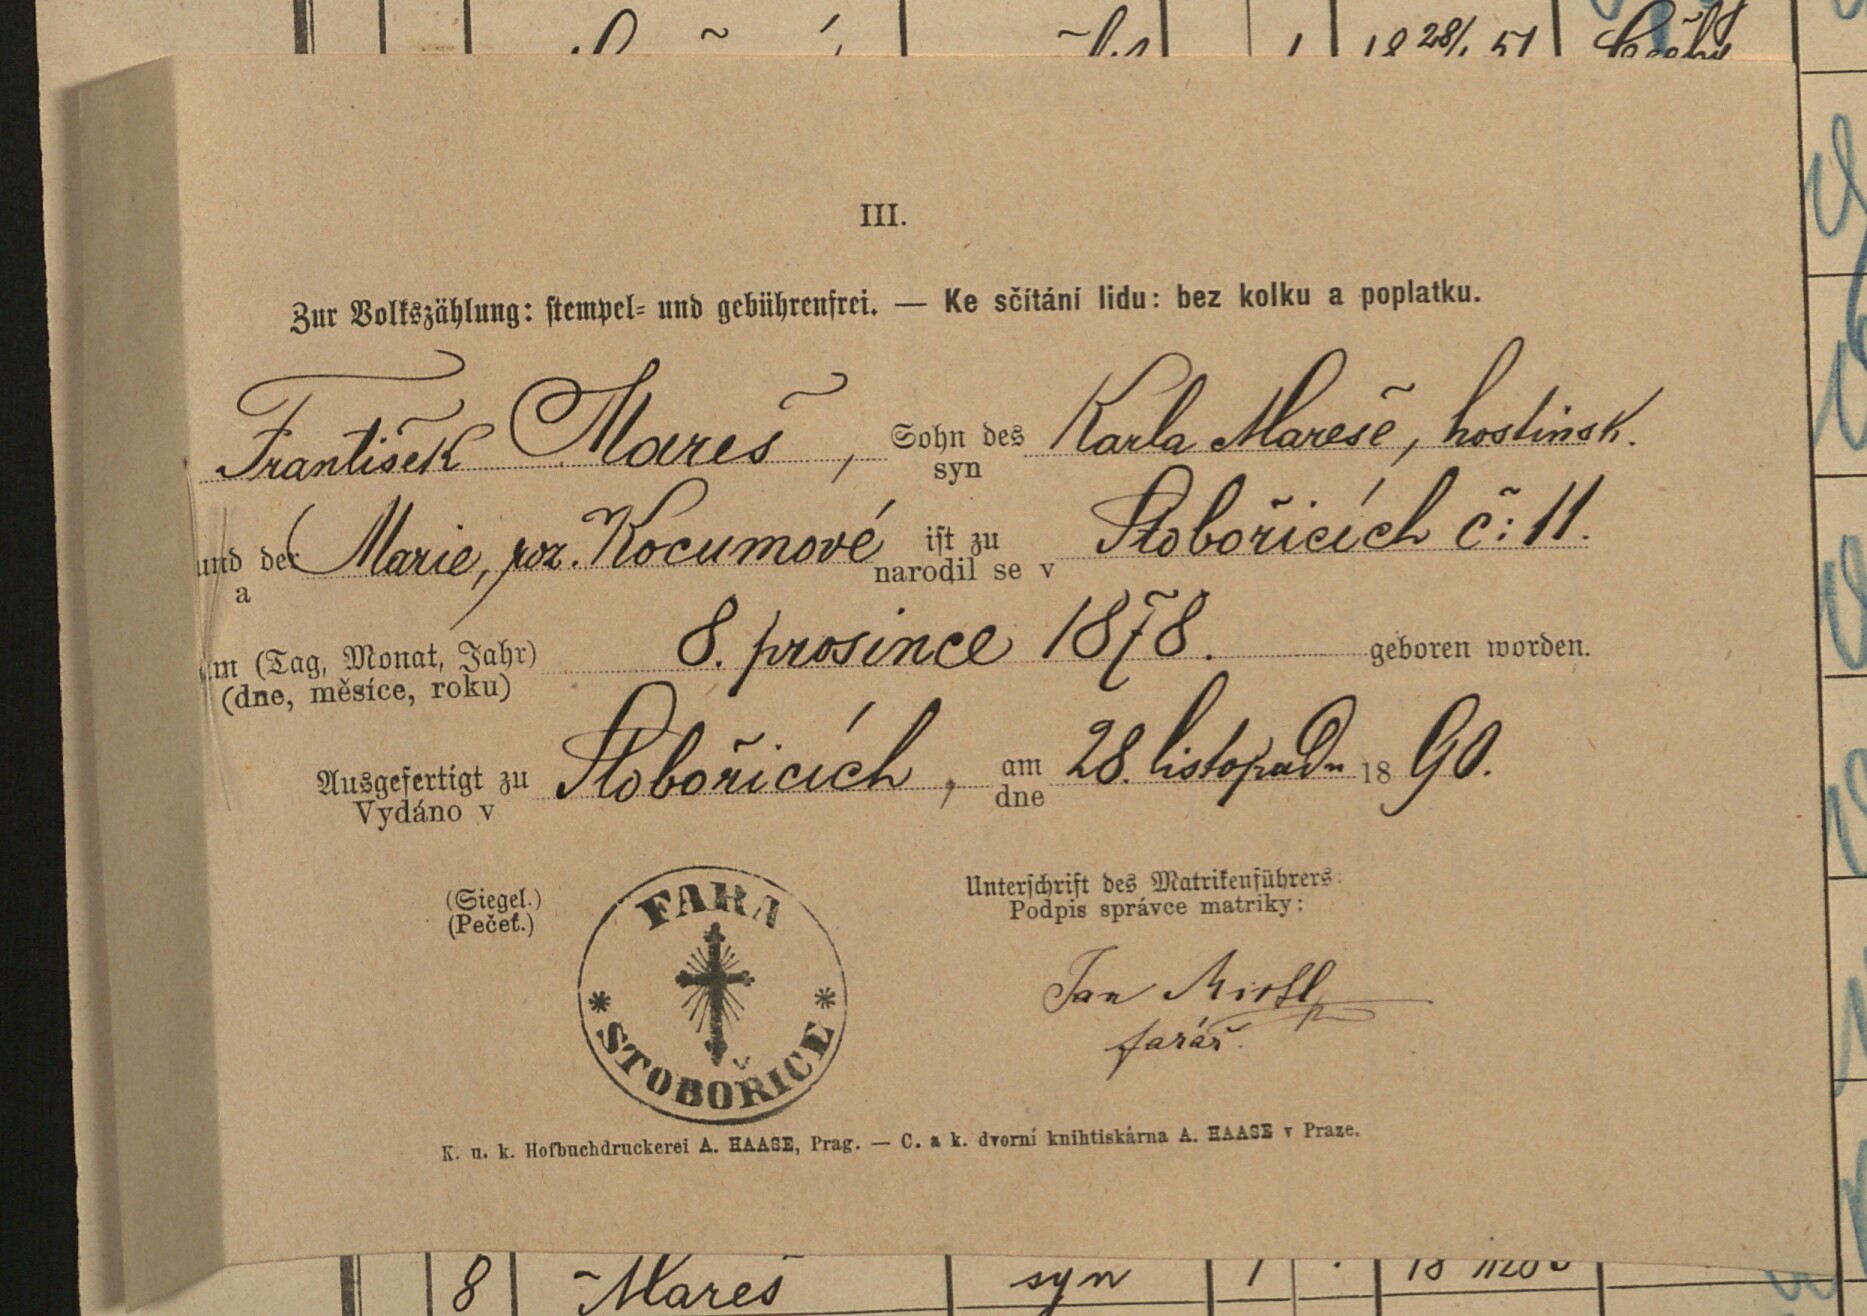 28/1 51
III.
Zur Volkszählung: stempel- und gebührenfrei. — Ke sčítání lidu: bez kolku a poplatku.
František Mareš, Sohn des Karla Mareše, hostinsk.
syn
und der Marie, roz. Kocumové ist zu Stobořicích č: 11.
a narodil se v
am (Tag, Monat, Jahr) 8. prosince 1878. geboren worden.
(dne, měsíce, roku)
Ausgefertigt zu Stobořicích, am 28. listopadu 1890.
Vydáno v dne
(Siegel.) Unterschrift des Matrikenführers:
(Pečeť.) Podpis správce matriky:
FARA
* STOBOŘICE *
Jan
farář.
K. u. k. Hofbuchdruckerei A. HAASE, Prag. — C. a k. dvorní knihtiskárna A. HAASE v Praze.
8 Mareš syn 1 18